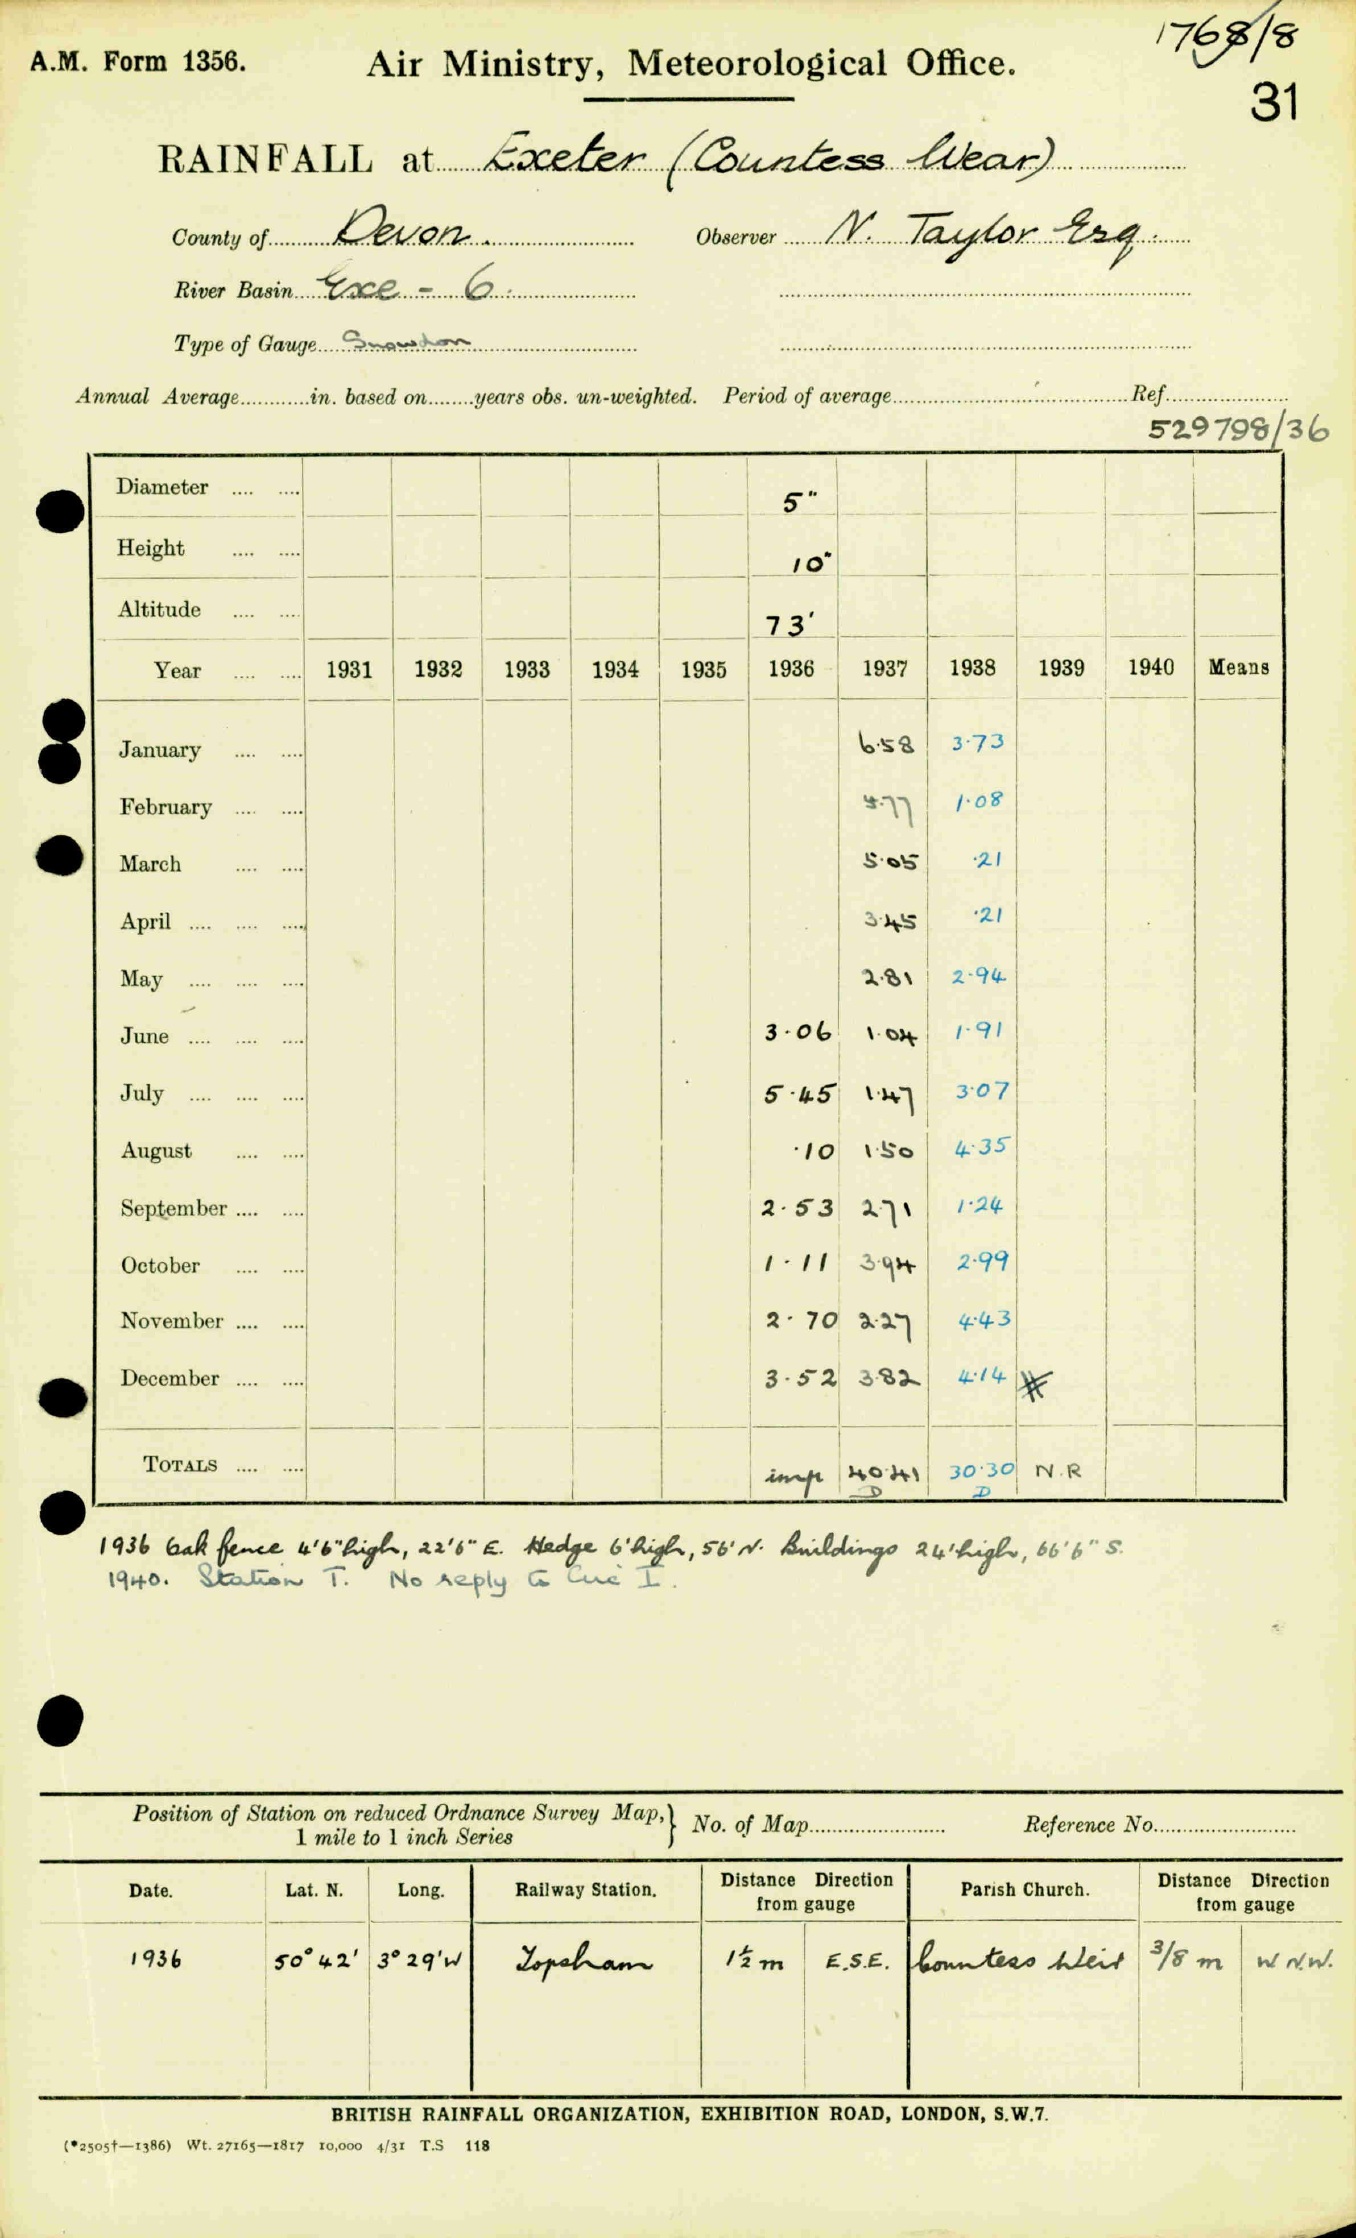 1768/8
31
A.M. Form 1356.
Air Ministry, Meteorological Office.
RAINFALL at Exeter (Countess Wear)
County of Devon. Observer N. Taylor Esq.
River Basin Exe - 6.
Type of Gauge Snowdon
Annual Average in. based on years obs. un-weighted. Period of average Ref.
529798/36
Diameter 5"
Height 10"
Altitude 73'
Year 1931 1932 1933 1934 1935 1936 1937 1938 1939 1940 Means
January 6.58 3.73
February 5.77 1.08
March 5.05 .21
April 3.45 .21
May 2.81 2.94
June 3.06 1.04 1.91
July 5.45 1.47 3.07
August .10 1.50 4.35
September 2.53 2.71 1.24
October 1.11 3.94 2.99
November 2.70 2.27 4.43
December 3.52 3.82 4.14
TOTALS imp 40.41 30.30 N.R
D D
1936 Oak fence 4'6" high, 22'6" E. Hedge 6' high, 56' N. Buildings 24' high, 66'6" S.
1940. Station T. No reply to Circ I.
Position of Station on reduced Ordnance Survey Map, 1 mile to 1 inch Series } No. of Map Reference No.
Date. Lat. N. Long. Railway Station. Distance Direction from gauge Parish Church. Distance Direction from gauge
1936 50° 42' 3° 29' W Topsham 1½ m E.S.E. Countess Weir 3/8 m W N.W.
BRITISH RAINFALL ORGANIZATION, EXHIBITION ROAD, LONDON, S.W.7.
(*2505†—1386) Wt. 27165—1817 10,000 4/31 T.S 118